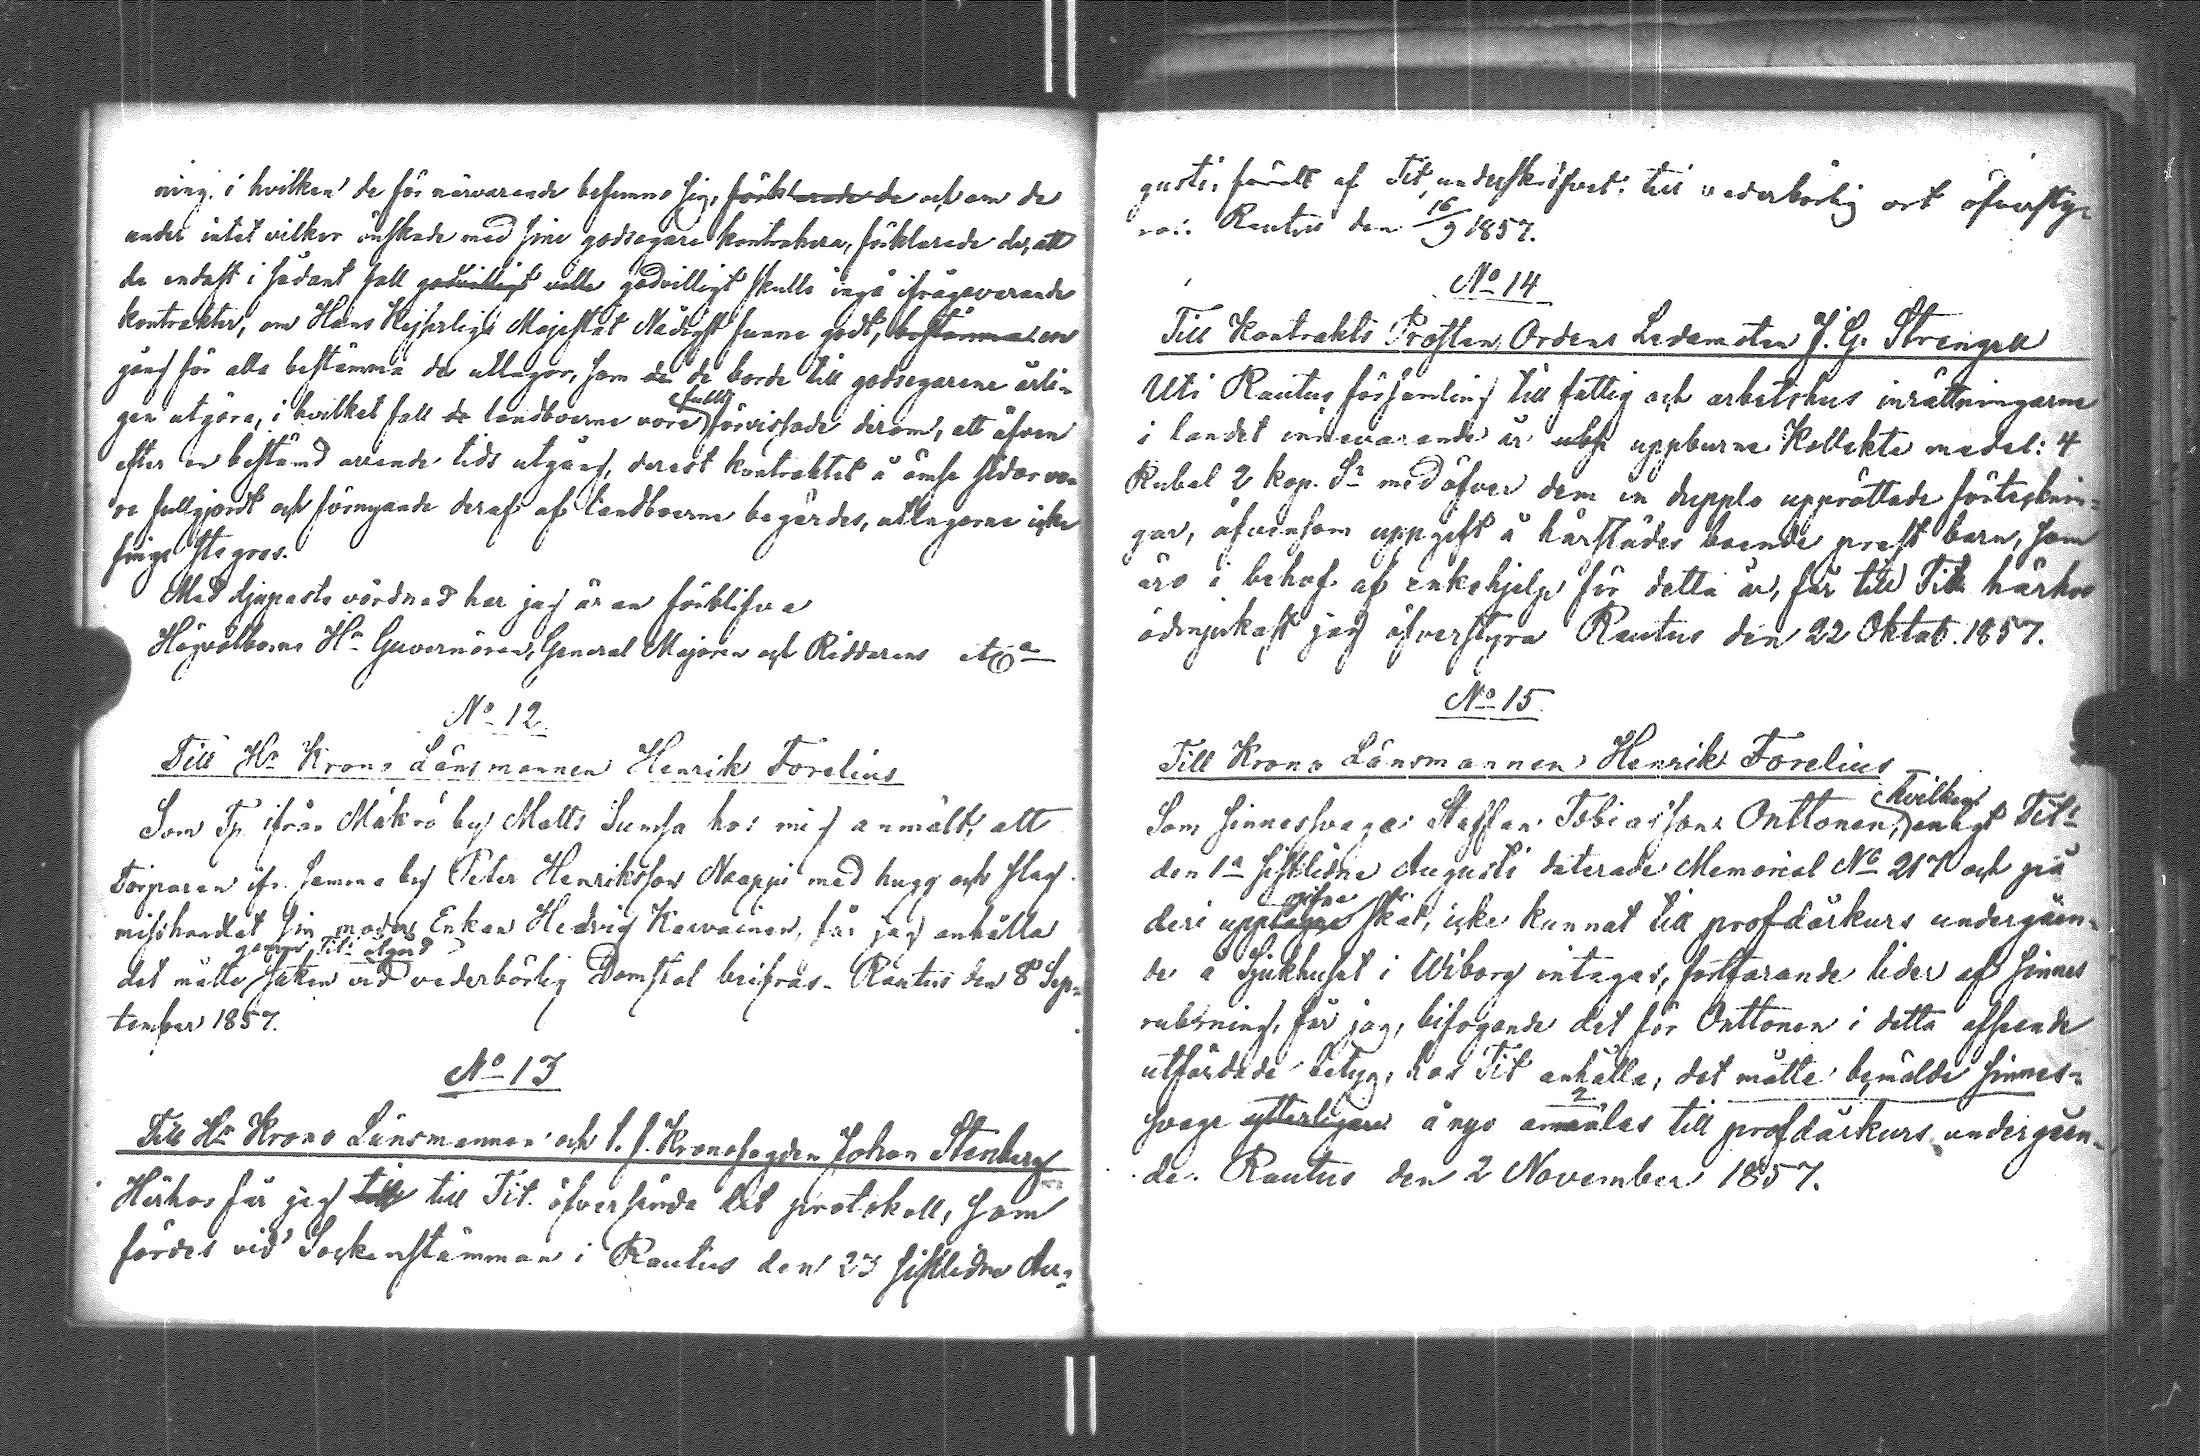 ning, i hvilken de för närvarande befunno sig, förklarade de och om de
under intet vilkor önskade med sine godsegare kontrahera, förklarade de, att
de endast i sådant fall godvilligt ville godvilligt skulle ingå ifrågavarande
kontrakter, om Hans Kejserliga Majestät Nådigst funne godt, bestämma en
gång för alla bestämma de utlagor, som de de borde till godsegarene årli-
gen utgöra, i hvilket fall de landboerne vore fullt förvissade derom, att äfven
efter en bestämd arrende tids utgång, derest kontraktet å ömse sidor vo-
re fullgjordt och förnyande deraf af landboerne begärdes, utlagorne icke
finge stegras.
Med djupaste vördnad har jag äran förblifva
Högvälborne Hr Guvernörens, General Majoren och Riddarens etca
No 12.
Till Hr Krono Länsmannen Henrik Forelius
Som Tp. ifrån Mäkrä by Matts Sumsa hos mig anmält, att
Torparen ifr. samma by Peter Henriksson Naappi med hugg och slag
misshandlat sin moder Enkan Hedvig Karvainen, får jag anhålla
genom Tits åtgärd
det måtte saken vid vederbörlig Domstol beifras. Rautus den 8 Sep-
tember 1857.
No 13
Till Hr Krono Länsmannen och t. f. Kronofogden Johan Stenberg
Härhos får jag till till Tit. öfversända det protokoll, som
fördes vid Sockenstämman i Rautus den 23 sistlidne Au-
gusti, för att af Tit underskrifvet till vederbörlig ort öfversty-
ras. Rautus den 16/9 1857.
No 14
Till Kontrakts Prosten, Ordens Ledamoten J. G. Strengell
Uti Rautus församling till fattig och arbetshus inrättningarne
i landet innevarande år uppburne Kollekte medel: 4
Rubel 2 kop. Sr med öfver dem in dupplo upprättade förtecknin-
gar, äfvensom uppgift å härstädes boende prest barn, som
äro i behof af enkehjelp för detta år, får till Tit härhos
ödmjukast jag öfverstyra Rautus den 22 Oktob. 1857.
No 15.
Till Krono Länsmannen Henrik Forelius
Som sinnessvage Staffan Tobiasson Onttonen, hvilken enligt Tits
den 1a sistlidne Augusti daterade Memorial No 217 och på
gifne
deri upptagne skäl, icke kunnat till profdårkurs undergåen-
de å Sjukhuset i Wiborg intagas, fortfarande lider af sinnes
rubbning, får jag, bifogande det för Onttonen i detta afseende
utfärdade betyg, hos Tit anhålla, det måtte bemälde sinnes-
svage ytterligare å nyo anmälas till profdårkurs undergåen-
de. Rautus den 2 November 1857.